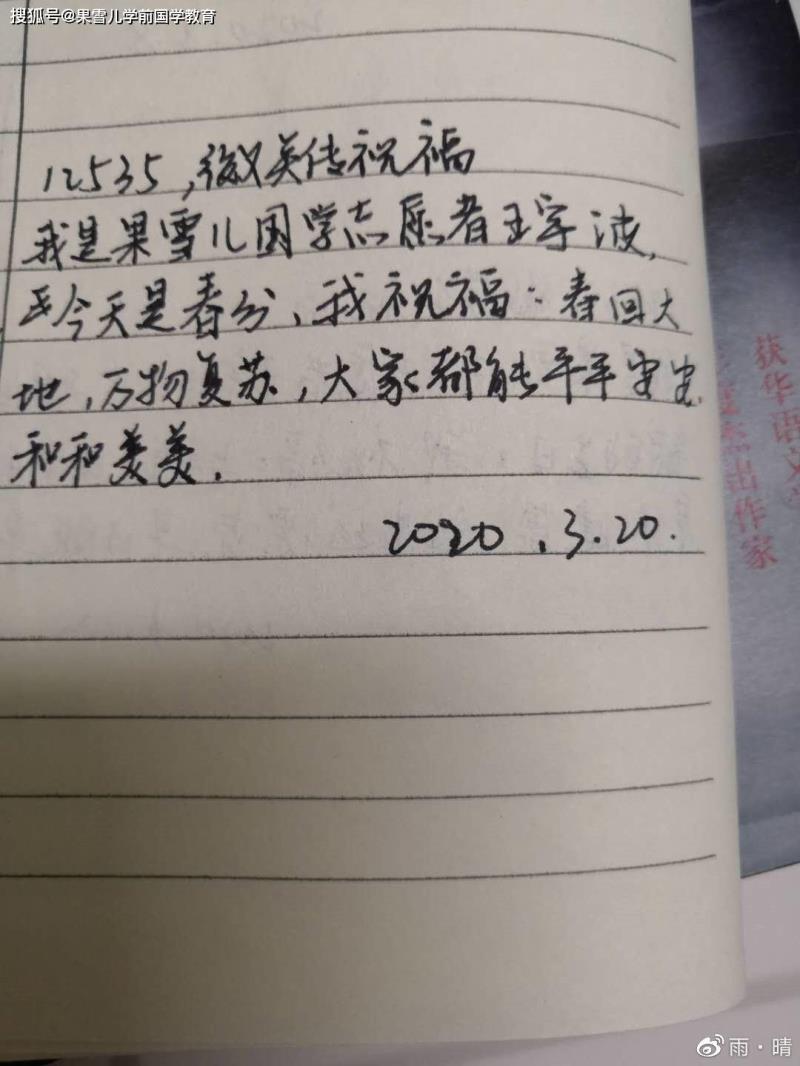 搜狐号@果雪儿学前国学教育
12535,微笑传祝福
我是果雪儿国学志愿者王宇波,
今天是春分、我祝福:春回大
地,万物复苏,大家都能平平安安
和和美美.
2020.3.20.
获华语文
杰出作家
雨·晴